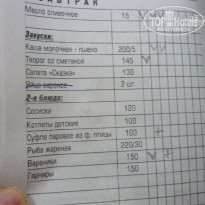 ЗАВТРАК
Масло сливочное 15
Закуски:
Каша молочная - пшено 200/5
Творог со сметаной 145
Салат «Сказка» 130
Яйцо вареное 2 шт.
2-е блюда:
Сосиски 120
Котлеты детские 100
Суфле паровое из ф. птицы 100
Рыба жареная 220/30
Вареники 150
Гарниры 150